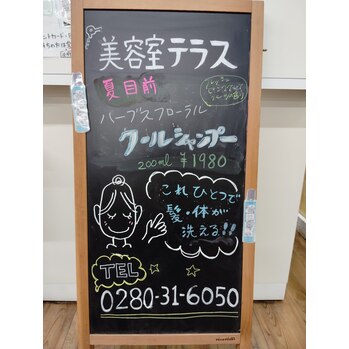 美容室テラス
夏目前
ハーブスフローラル
クールシャンプー
200ml ¥1980
これひとつで
髪・体が
洗える!!
TEL
0280-31-6050